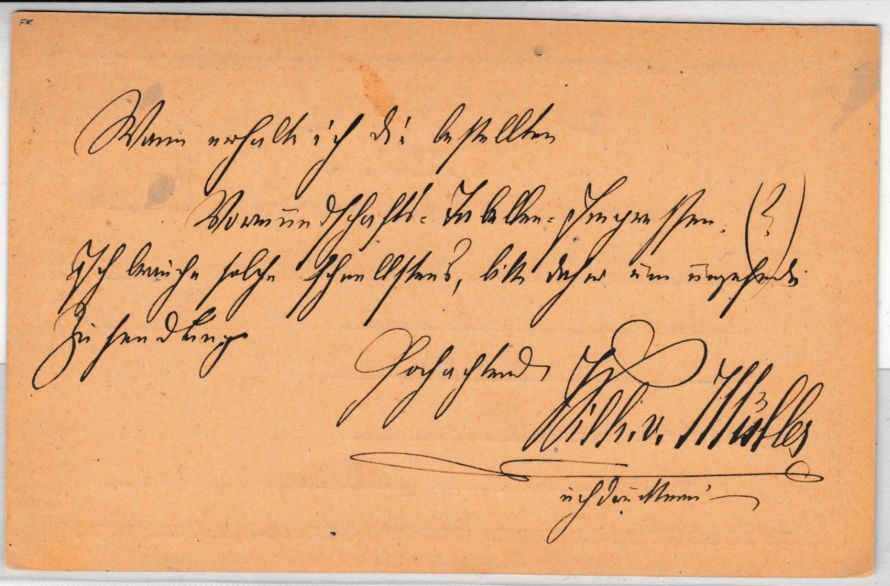 Wann erhalte ich die bestellten
Vormundschafts-Tabellen-Impressen. (?)
Ich brauche solche schnellstens, bitte daher um umgehende
Zusendung
Hochachtend
Wilh. v. Müller